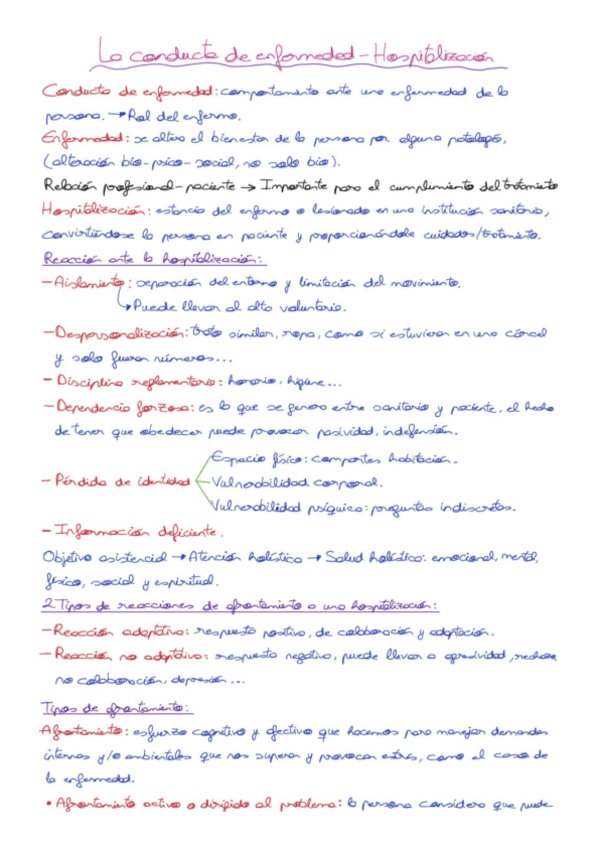 La conducta de enfermedad - Hospitalización
Conducta de enfermedad: comportamiento ante una enfermedad de la
persona. → Rol del enfermo.
Enfermedad: se altera el bienestar de la persona por alguna patología,
(alteración bio-psico-social, no solo bio).
Relación profesional-paciente → Importante para el cumplimiento del tratamiento
Hospitalización: estancia del enfermo o lesionado en una institución sanitaria,
convirtiéndose la persona en paciente y proporcionándole cuidados/tratamiento.
Reacción ante la hospitalización:
- Aislamiento: separación del entorno y limitación del movimiento.
↳ Puede llevar al alta voluntaria.
- Despersonalización: trato similar, ropa, como si estuvieran en una cárcel
y solo fueran números...
- Disciplina reglamentaria: horario, higiene...
- Dependencia forzosa: es la que se genera entre sanitario y paciente, el hecho
de tener que obedecer puede provocar pasividad, indefensión.
Espacio físico: compartes habitación.
- Pérdida de identidad Vulnerabilidad corporal.
Vulnerabilidad psíquica: preguntas indiscretas.
- Información deficiente.
Objetivo asistencial → Atención holística → Salud holística: emocional, mental,
física, social y espiritual.
2 Tipos de reacciones de afrontamiento a una hospitalización:
- Reacción adaptativa: respuesta positiva, de colaboración y adaptación.
- Reacción no adaptativa: respuesta negativa, puede llevar a agresividad, rechazo,
no colaboración, depresión...
Tipos de afrontamiento:
Afrontamiento: esfuerzo cognitivo y afectivo que hacemos para manejar demandas
internas y/o ambientales que nos superan y provocan estrés, como el caso de
la enfermedad.
• Afrontamiento activo o dirigido al problema: la persona considera que puede